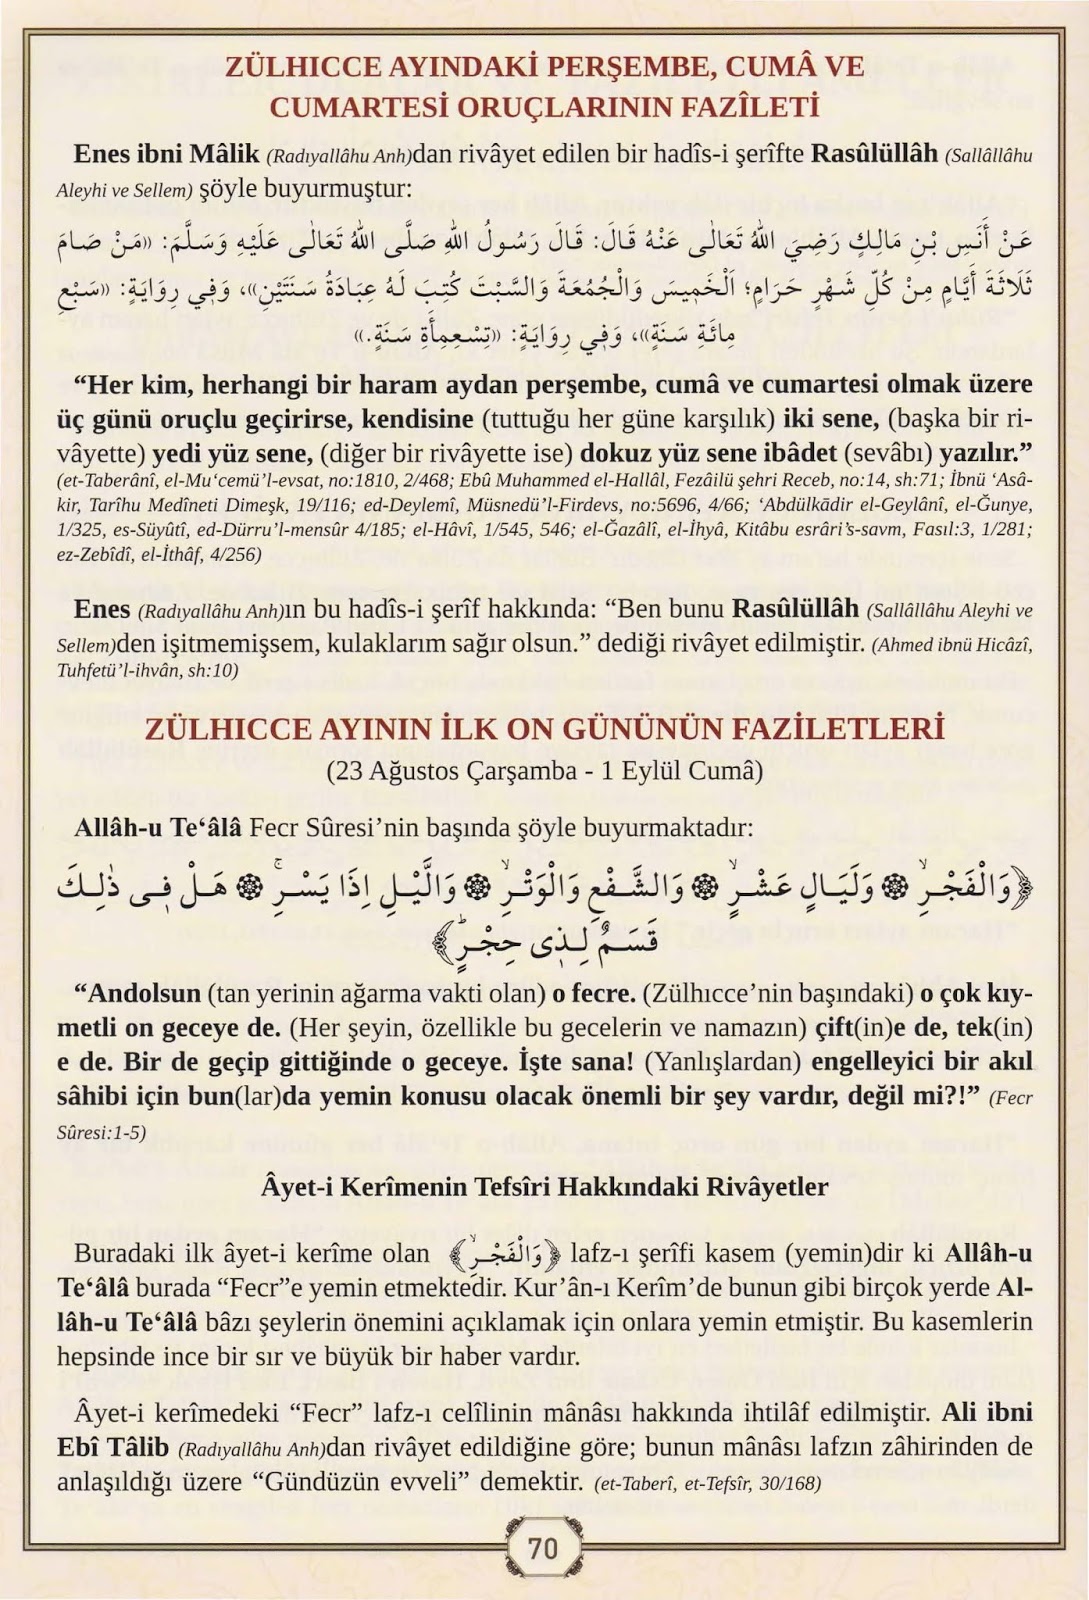 ZÜLHICCE AYINDAKİ PERŞEMBE, CUMÂ VE
CUMARTESİ ORUÇLARININ FAZÎLETİ
Enes ibni Mâlik (Radıyallâhu Anh)dan rivâyet edilen bir hadîs-i şerîfte Rasûlüllâh (Sallâllâhu
Aleyhi ve Sellem) şöyle buyurmuştur:
عَنْ أَنَسِ بْنِ مَالِكٍ رَضِيَ اللهُ تَعَالَى عَنْهُ قَالَ: قَالَ رَسُولُ اللهِ صَلَّى اللهُ تَعَالَى عَلَيْهِ وَسَلَّمَ: «مَنْ صَامَ
ثَلَاثَةَ أَيَّامٍ مِنْ كُلِّ شَهْرٍ حَرَامٍ؛ اَلْخَمِيسَ وَالْجُمُعَةَ وَالسَّبْتَ كُتِبَ لَهُ عِبَادَةُ سَنَتَيْنِ»، وَفِي رِوَايَةٍ: «سَبْعِ
مِائَةِ سَنَةٍ»، وَفِي رِوَايَةٍ: «تِسْعِمِأَةِ سَنَةٍ.»
“Her kim, herhangi bir haram aydan perşembe, cumâ ve cumartesi olmak üzere
üç günü oruçlu geçirirse, kendisine (tuttuğu her güne karşılık) iki sene, (başka bir ri-
vâyette) yedi yüz sene, (diğer bir rivâyette ise) dokuz yüz sene ibâdet (sevâbı) yazılır.”
(et-Taberânî, el-Mu‘cemü’l-evsat, no:1810, 2/468; Ebû Muhammed el-Hallâl, Fezâilü şehri Receb, no:14, sh:71; İbnü ‘Asâ-
kir, Tarîhu Medîneti Dimeşk, 19/116; ed-Deylemî, Müsnedü’l-Firdevs, no:5696, 4/66; ‘Abdülkādir el-Geylânî, el-Ğunye,
1/325, es-Süyûtî, ed-Dürru’l-mensûr 4/185; el-Hâvî, 1/545, 546; el-Ğazâlî, el-İhyâ, Kitâbu esrâri’s-savm, Fasıl:3, 1/281;
ez-Zebîdî, el-İthâf, 4/256)
Enes (Radıyallâhu Anh)ın bu hadîs-i şerîf hakkında: “Ben bunu Rasûlüllâh (Sallâllâhu Aleyhi ve
Sellem)den işitmemişsem, kulaklarım sağır olsun.” dediği rivâyet edilmiştir. (Ahmed ibnü Hicâzî,
Tuhfetü’l-ihvân, sh:10)
ZÜLHICCE AYININ İLK ON GÜNÜNÜN FAZİLETLERİ
(23 Ağustos Çarşamba - 1 Eylül Cumâ)
Allâh-u Te‘âlâ Fecr Sûresi’nin başında şöyle buyurmaktadır:
﴿وَالْفَجْرِۙ ۞ وَلَيَالٍ عَشْرٍۙ ۞ وَالشَّفْعِ وَالْوَتْرِۙ ۞ وَالَّيْلِ اِذَا يَسْرِۚ ۞ هَلْ فٖى ذٰلِكَ
قَسَمٌ لِذٖى حِجْرٍؕ﴾
“Andolsun (tan yerinin ağarma vakti olan) o fecre. (Zülhıcce’nin başındaki) o çok kıy-
metli on geceye de. (Her şeyin, özellikle bu gecelerin ve namazın) çift(in)e de, tek(in)
e de. Bir de geçip gittiğinde o geceye. İşte sana! (Yanlışlardan) engelleyici bir akıl
sâhibi için bun(lar)da yemin konusu olacak önemli bir şey vardır, değil mi?!” (Fecr
Sûresi:1-5)
Âyet-i Kerîmenin Tefsîri Hakkındaki Rivâyetler
Buradaki ilk âyet-i kerîme olan ﴿وَالْفَجْرِۙ﴾ lafz-ı şerîfi kasem (yemin)dir ki Allâh-u
Te‘âlâ burada “Fecr”e yemin etmektedir. Kur’ân-ı Kerîm’de bunun gibi birçok yerde Al-
lâh-u Te‘âlâ bâzı şeylerin önemini açıklamak için onlara yemin etmiştir. Bu kasemlerin
hepsinde ince bir sır ve büyük bir haber vardır.
Âyet-i kerîmedeki “Fecr” lafz-ı celîlinin mânâsı hakkında ihtilâf edilmiştir. Ali ibni
Ebî Tâlib (Radıyallâhu Anh)dan rivâyet edildiğine göre; bunun mânâsı lafzın zâhirinden de
anlaşıldığı üzere “Gündüzün evveli” demektir. (et-Taberî, et-Tefsîr, 30/168)
70